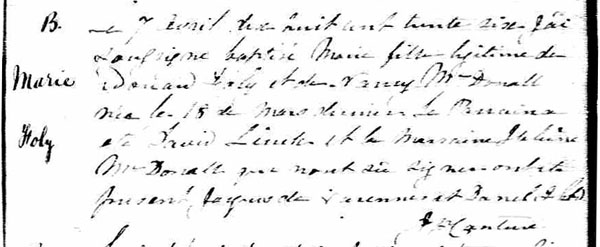 B.
Marie
Foly
Le 7 Avril dix huit cent trente six j'ai
Soussigné baptisé Marie fille légitime de
Foly et de Nancy Mc Donall
née le 18 de Mars dernier Le Parrain a
été David et la Marraine
Mc Donall qui n'ont su signer ont été
présent Jacques de Varennes et